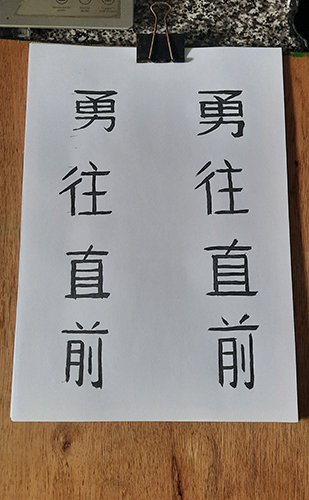 勇往直前
勇往直前